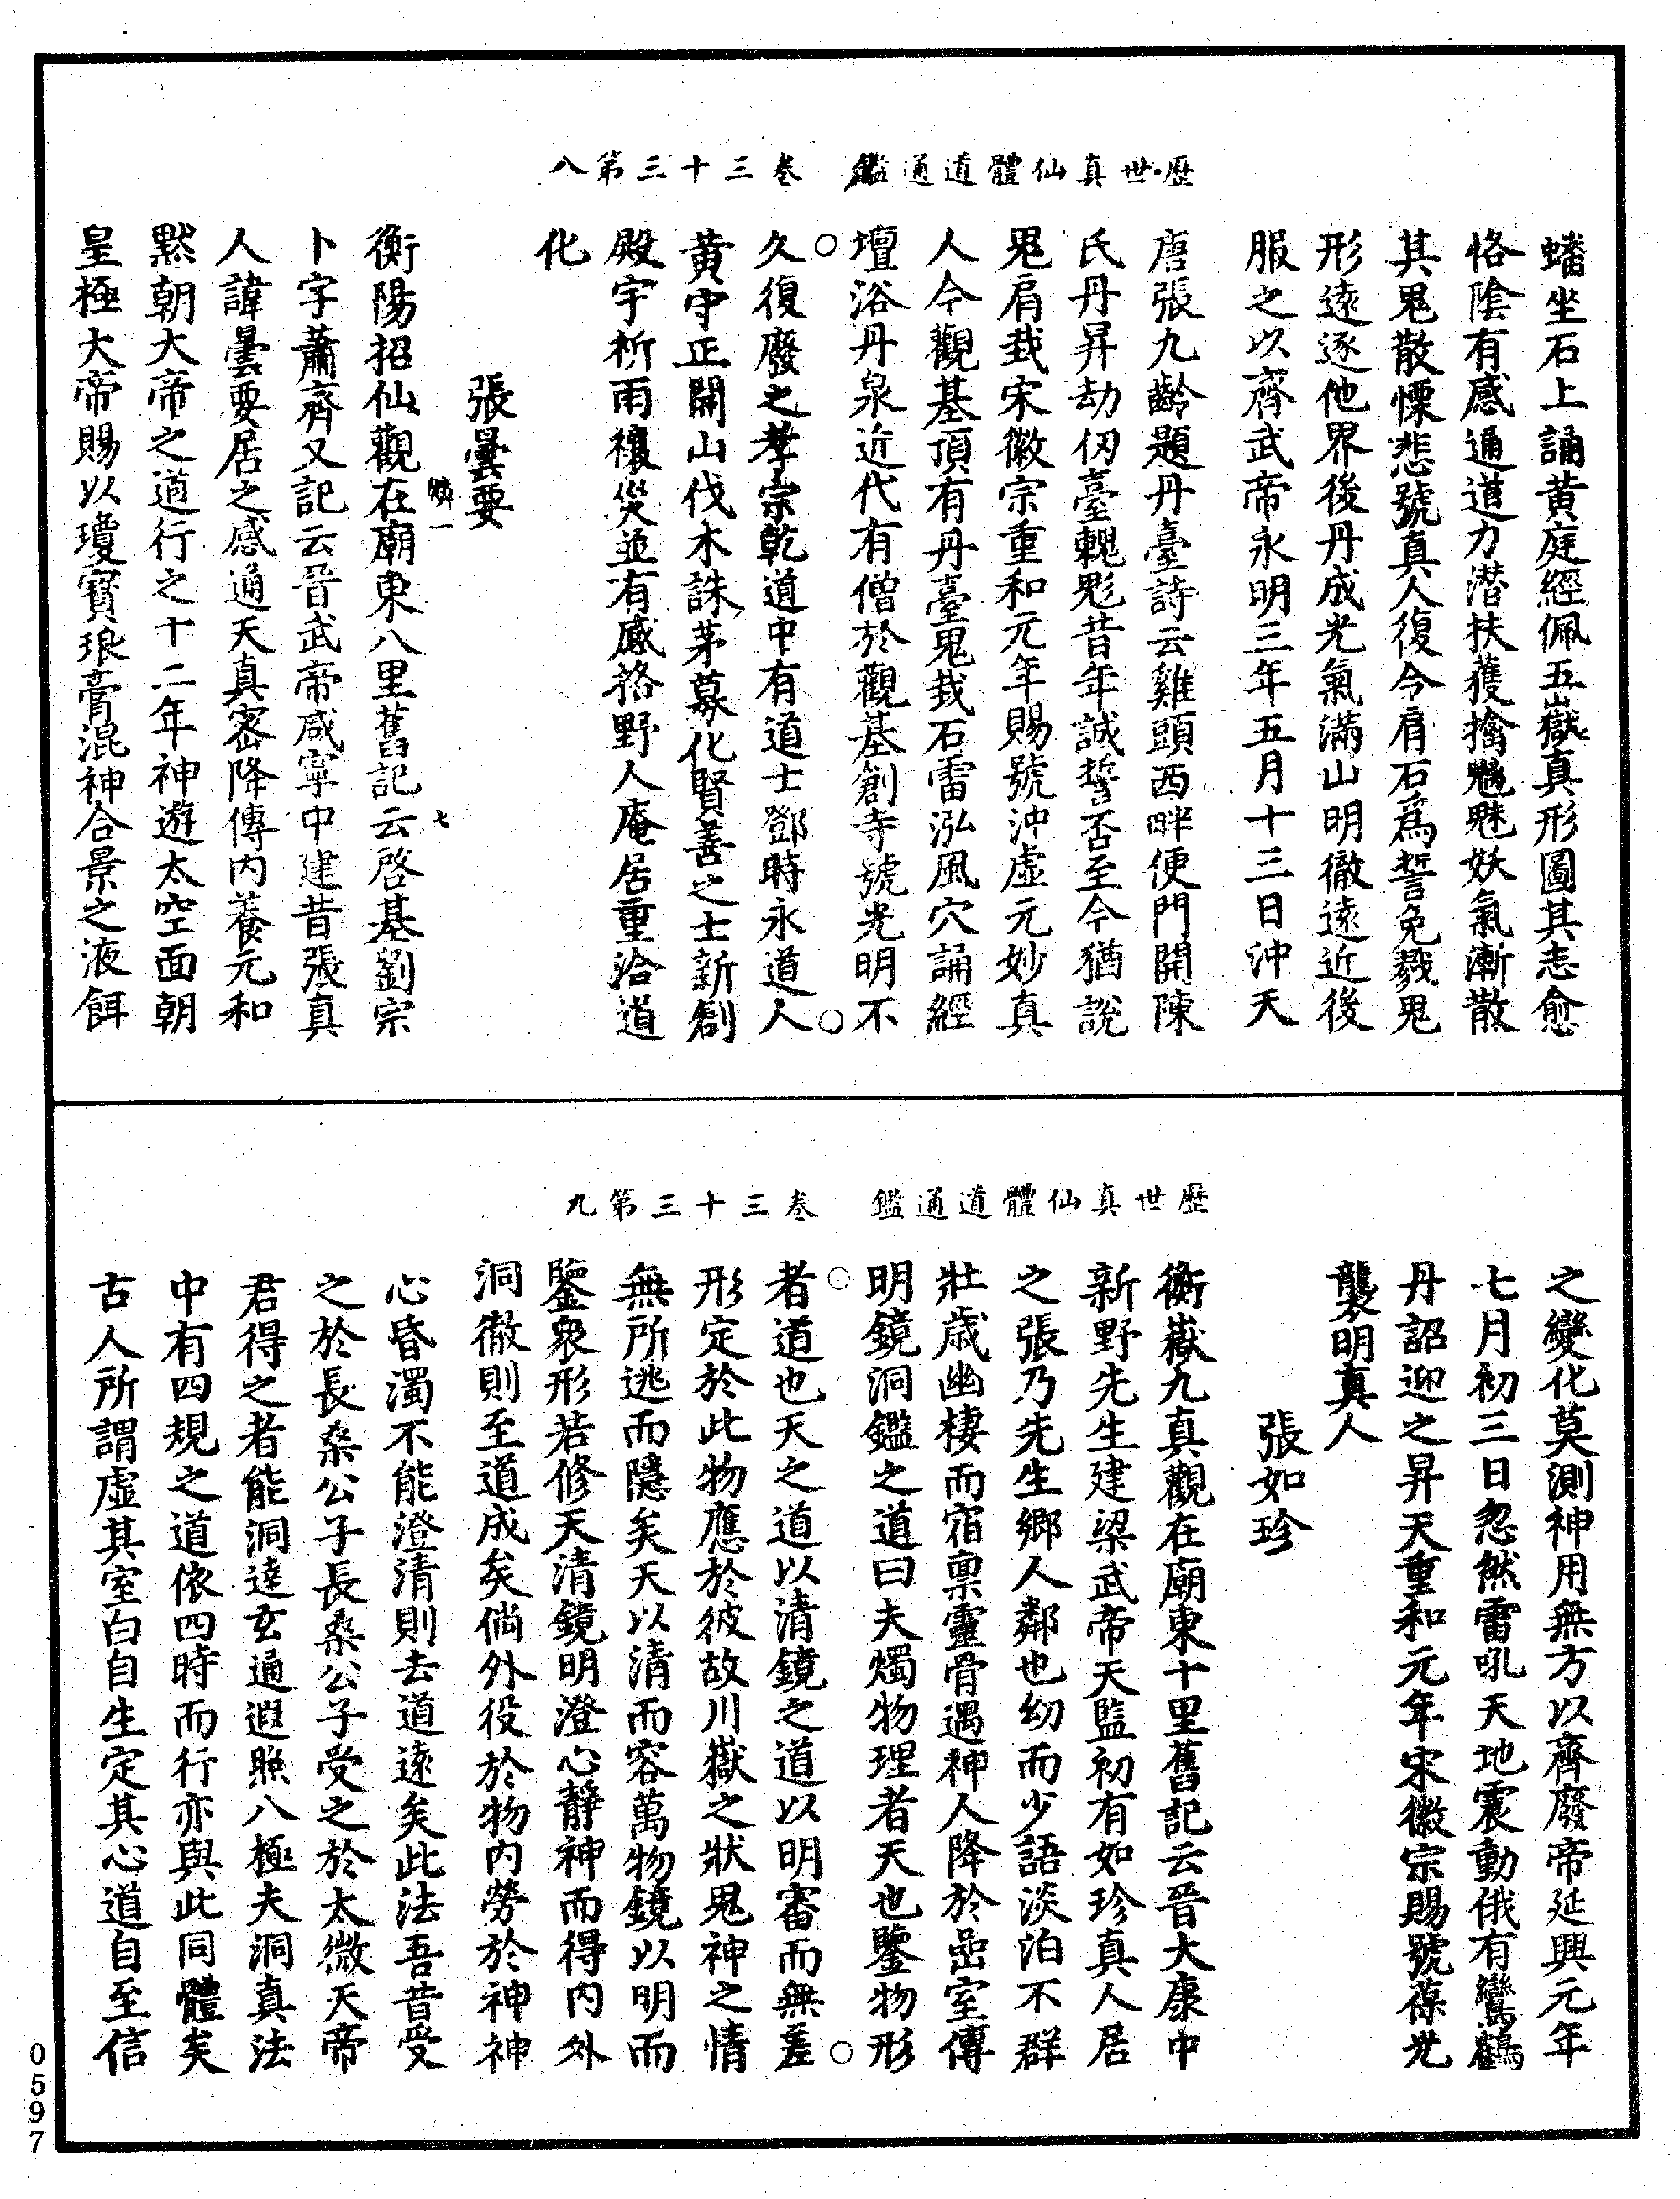 歷世真仙體道通鑑　卷三十三第八
蟠坐石上誦黃庭經佩五嶽真形圖其志愈
恪陰有感通道力潛扶獲擒魑魅妖氣漸散
其鬼散慄悲號真人復令肩石為誓免戮鬼
形遠逐他界後丹成光氣滿山明徹遠近後
服之以齊武帝永明三年五月十三日沖天
唐張九齡題丹臺詩云雞頭西畔便門開陳
氏丹昇劫仞臺魍魎昔年誠誓否至今猶說
鬼肩哉宋徽宗重和元年賜號沖虛元妙真
人今觀基頂有丹臺鬼哉石雷泓風穴誦經
壇浴丹泉近代有僧於觀基創寺號光明不
久復廢之孝宗乾道中有道士鄧時永道人
黃守正開山伐木誅茅募化賢善之士新創
殿宇祈雨禳災並有感格野人庵居重洽道
化
張曇要
鱗一　七
衡陽招仙觀在廟東八里舊記云啓基劉宗
卜字蕭齊又記云晉武帝咸寧中建昔張真
人諱曇要居之感通天真密降傳內養元和
默朝大帝之道行之十二年神遊太空面朝
皇極大帝賜以瓊寶琅膏混神合景之液餌
歷世真仙體道通鑑　卷三十三第九
之變化莫測神用無方以齊廢帝延興元年
七月初三日忽然雷吼天地震動俄有鸞鶴
丹詔迎之昇天重和元年宋徽宗賜號葆光
襲明真人
張如珍
衡嶽九真觀在廟東十里舊記云晉大康中
新野先生建梁武帝天監初有如珍真人居
之張乃先生鄉人鄰也幼而少語淡泊不群
壯歲幽棲而宿稟靈骨遇神人降於嵒室傳
明鏡洞鑑之道曰夫燭物理者天也鑒物形
者道也天之道以清鏡之道以明審而無差
形定於此物應於彼故川嶽之狀鬼神之情
無所逃而隱矣天以清而容萬物鏡以明而
鑒衆形若修天清鏡明澄心靜神而得內外
洞徹則至道成矣倘外役於物內勞於神神
心昏濁不能澄清則去道遠矣此法吾昔受
之於長桑公子長桑公子受之於太微天帝
君得之者能洞達玄通遐照八極夫洞真法
中有四規之道依四時而行亦與此同體矣
古人所謂虛其室白自生定其心道自至信
0597